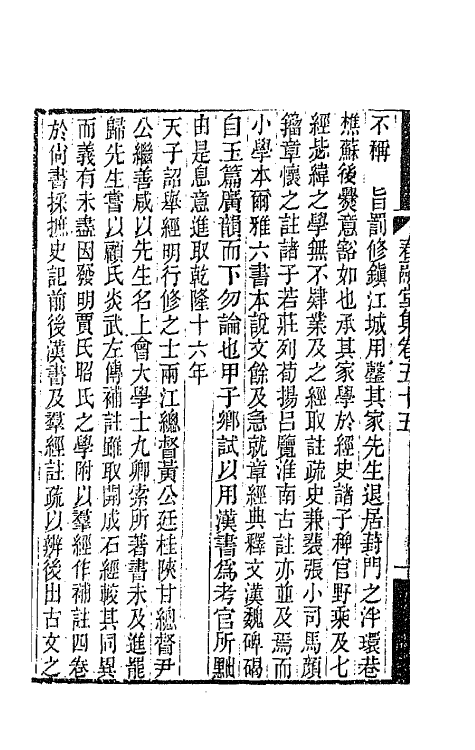 不稱　旨罰修鎮江城用罄其家先生退居葑門之泮環巷
樵蘇後爨意豁如也承其家學於經史諸子稗官野乘及七
經毖緯之學無不肄業及之經取註疏史兼裴張小司馬顔
籀章懷之註諸子若莊列荀揚呂覽淮南古註亦並及焉而
小學本爾雅六書本說文餘及急就章經典釋文漢魏碑碣
自玉篇廣韻而下勿論也甲子鄉試以用漢書為考官所黜
由是息意進取乾隆十六年
天子詔舉經明行修之士兩江總督黃公廷桂陝甘總督尹
公繼善咸以先生名上會大學士九卿索所著書未及進罷
歸先生嘗以顧氏炎武左傳補註雖取開成石經較其同異
而義有未盡因發明賈氏昭氏之學附以羣經作補註四卷
於尙書採摭史記前後漢書及羣經註疏以辨後出古文之
春融堂集卷五十五